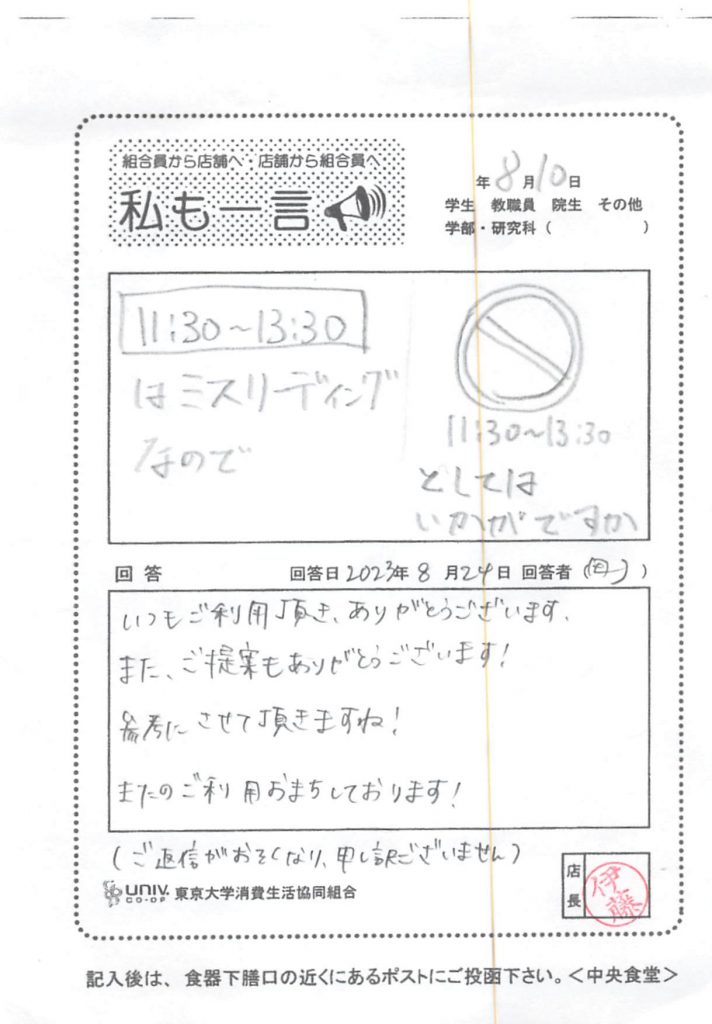 組合員から店舗へ・店舗から組合員へ
私も一言
年 8月10日
学生 教職員 院生 その他
学部・研究科( )
11:30~13:30
はミスリーディング
なので
11:30~13:30
としては
いかがですか
回答
回答日2023年8月24日 回答者( )
いつもご利用頂き、ありがとうございます。
また、ご提案もありがとうございます!
参考にさせて頂きますね!
またのご利用おまちしております!
(ご返信がおそくなり、申し訳ございません)
UNIV.
CO-OP
東京大学消費生活協同組合
店長
伊藤
記入後は、食器下膳口の近くにあるポストにご投函下さい。<中央食堂>